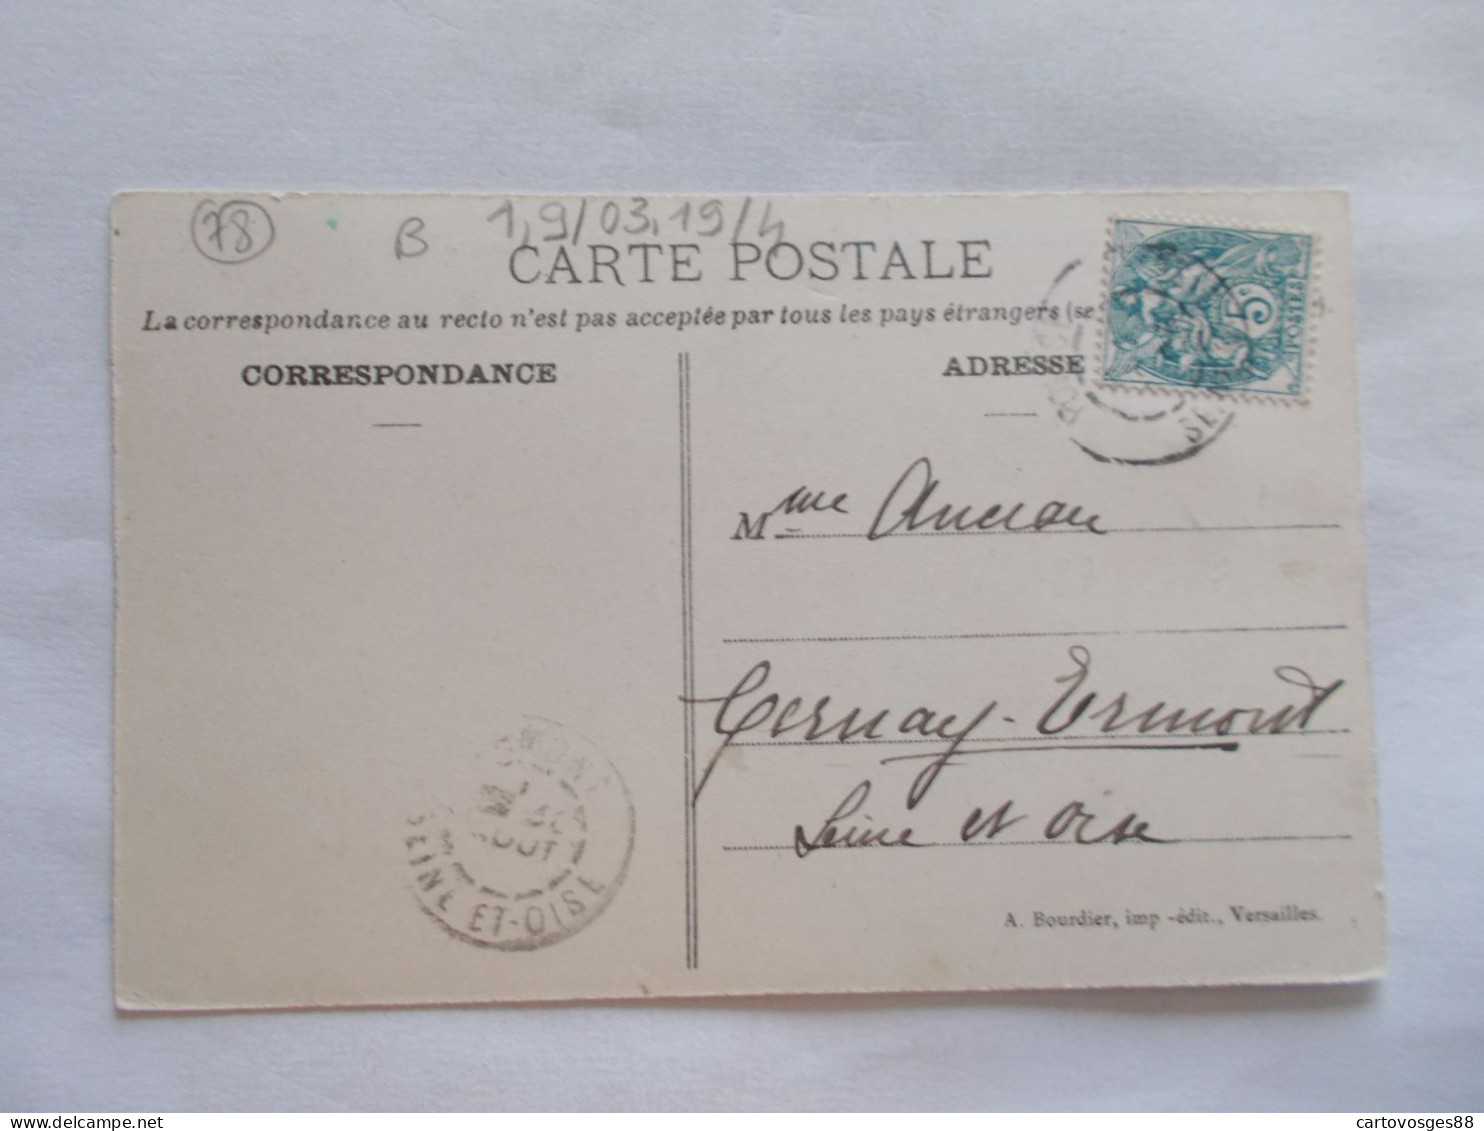 78 B 1,9/03.19/4
CARTE POSTALE
La correspondance au recto n'est pas acceptée par tous les pays étrangers (se
CORRESPONDANCE
ADRESSE
5c
POSTES
Mme
Cernay-Ermont
Seine et Oise
SEINE ET-OISE
A. Bourdier, imp -édit., Versailles.
cartovosges88